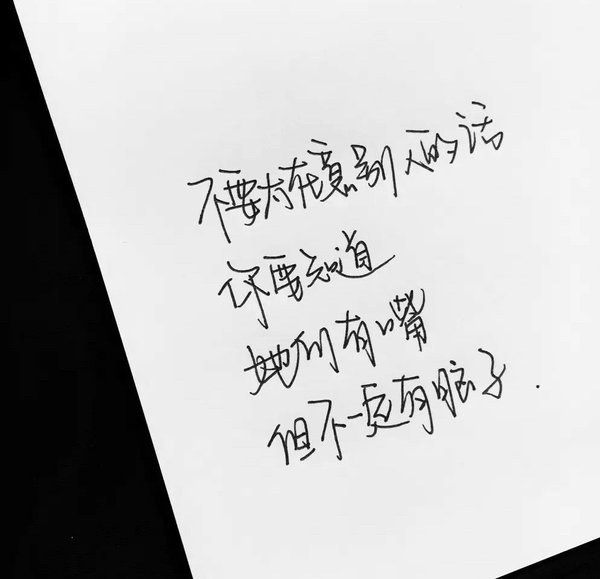 不要太在意别人的话
你要知道
她们有嘴
但不一定有脑子.